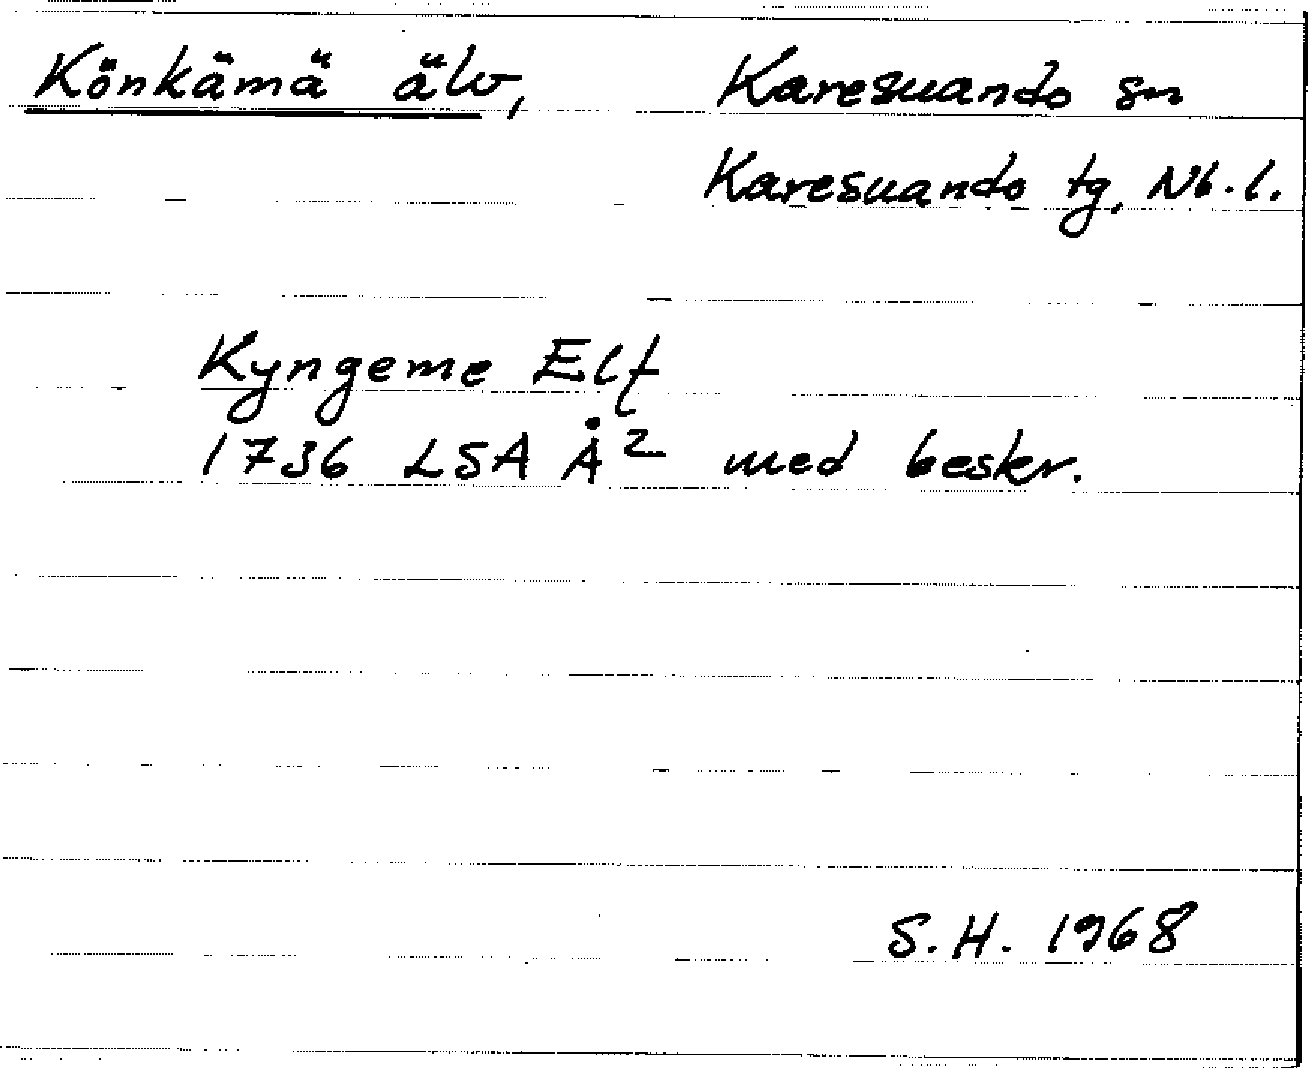 Könkämä älv, Karesuando sn
Karesuando tg, Nb.l.
Kyngeme Elf
1736 LSA Å² med beskr.
S.H. 1968